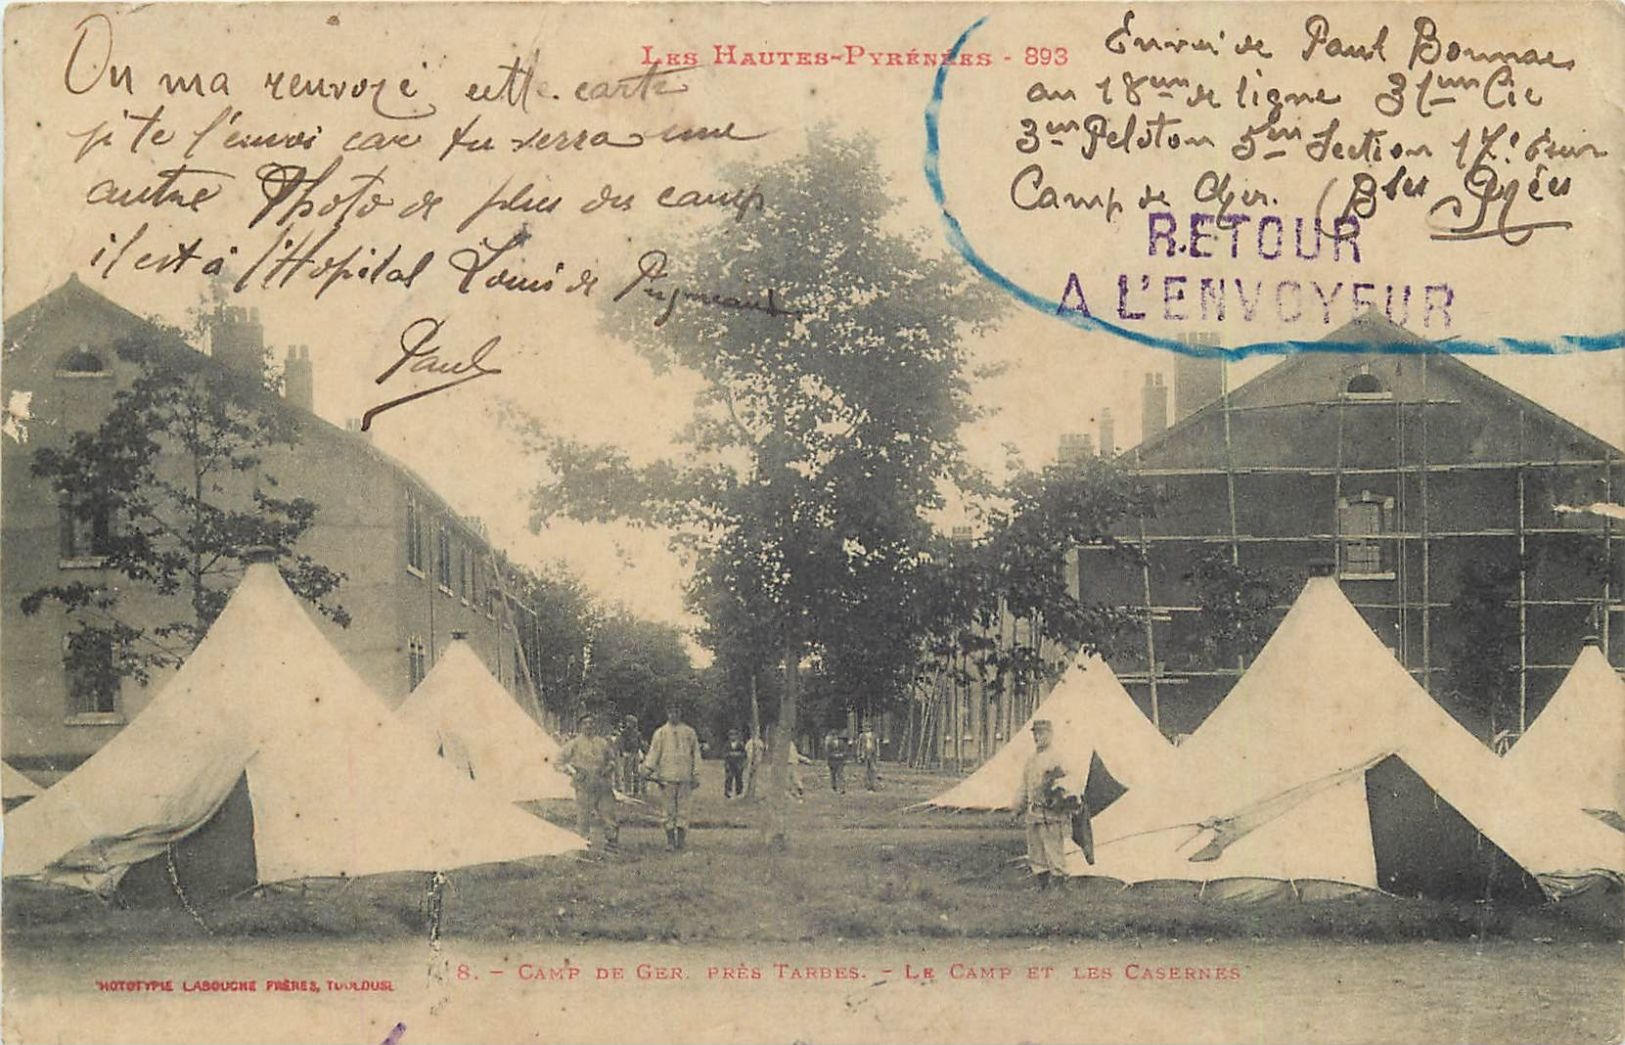 LES HAUTES-PYRÉNÉES - 893
On ma renvoyé cette carte
je te l'envoi car tu verra une
autre Photo de plus du camp
il est à l'Hopital Louis de
Paul
Envoi de Paul Bonnac
au 18em de ligne 31em Cie
3em Peloton 5em Section 17e
Camp de Ger. (Bses Pyrées
RETOUR
A L'ENVOYEUR
8. - CAMP DE GER. PRÈS TARBES. - LE CAMP ET LES CASERNES
PHOTOTYPIE LABOUCHE FRÈRES, TOULOUSE